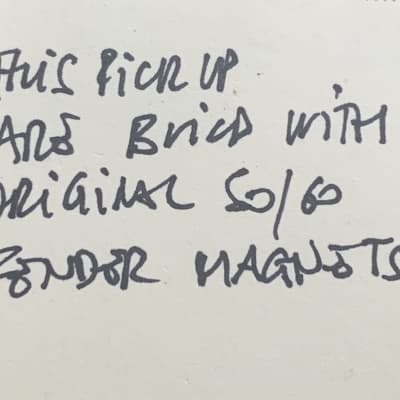 THIS PICKUP
ARE BUILD WITH
ORIGINAL 50/60
FENDER MAGNETS